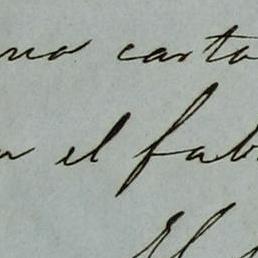 una carta
el fab
El